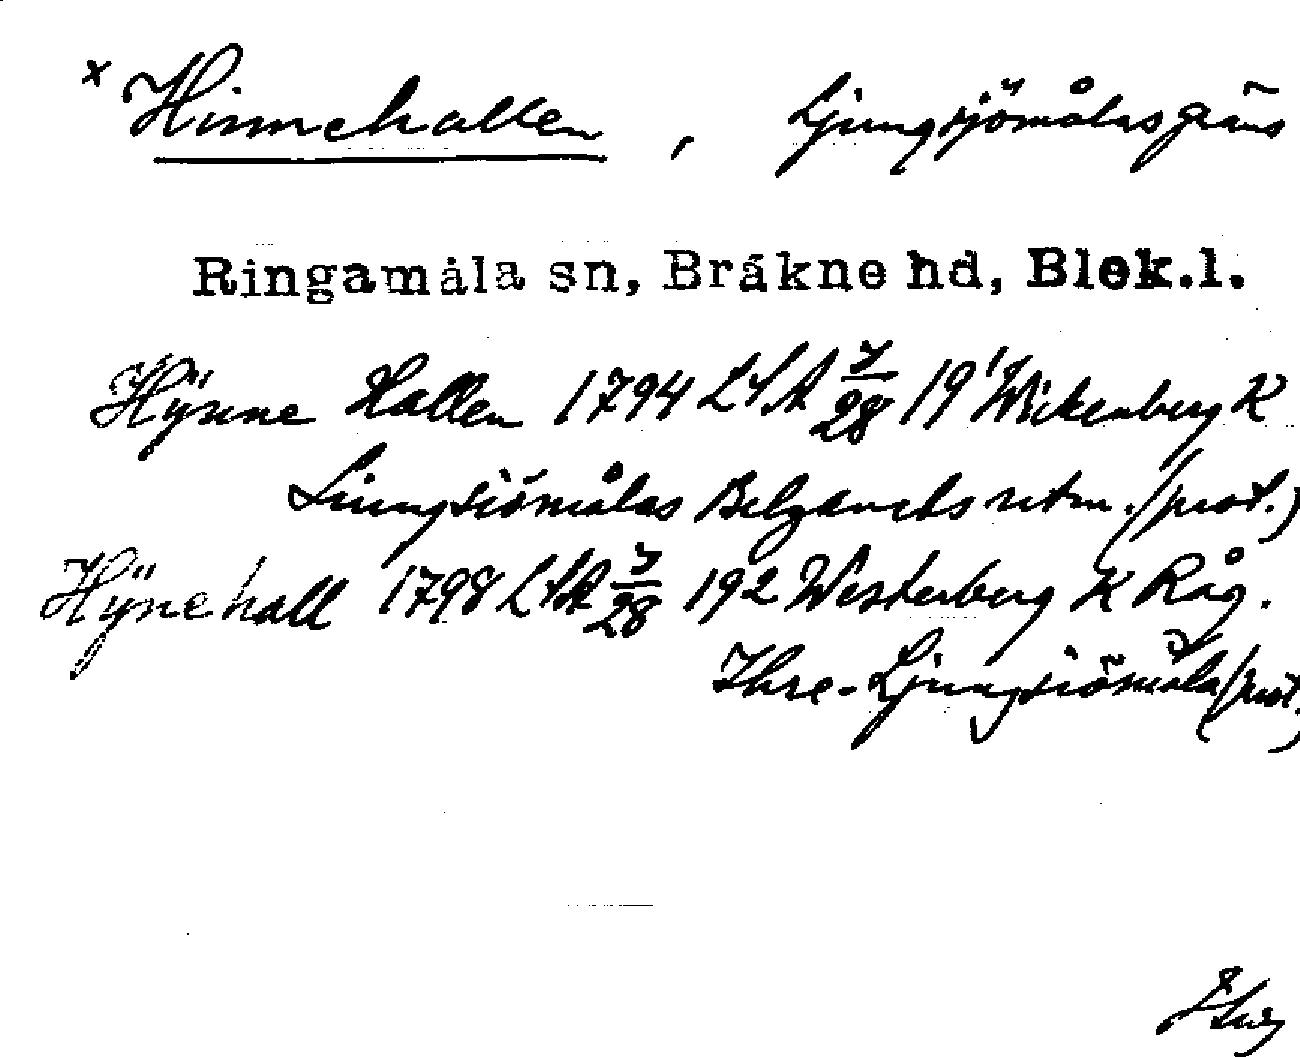 x Hinnehallen , Ljungsjömålas gräns
Ringamåla sn, Bräkne hd, Blek.l.
Hÿnne Hallen 1794 LSA J/28 19¹⁄ Wickenberg K
Liungsiömålas Belgenhets retm. (prot.)
Hÿnehall 1798 LSA J/28 19² Westerberg K Råg.
Ihre-Ljungsiömåla (prot.)